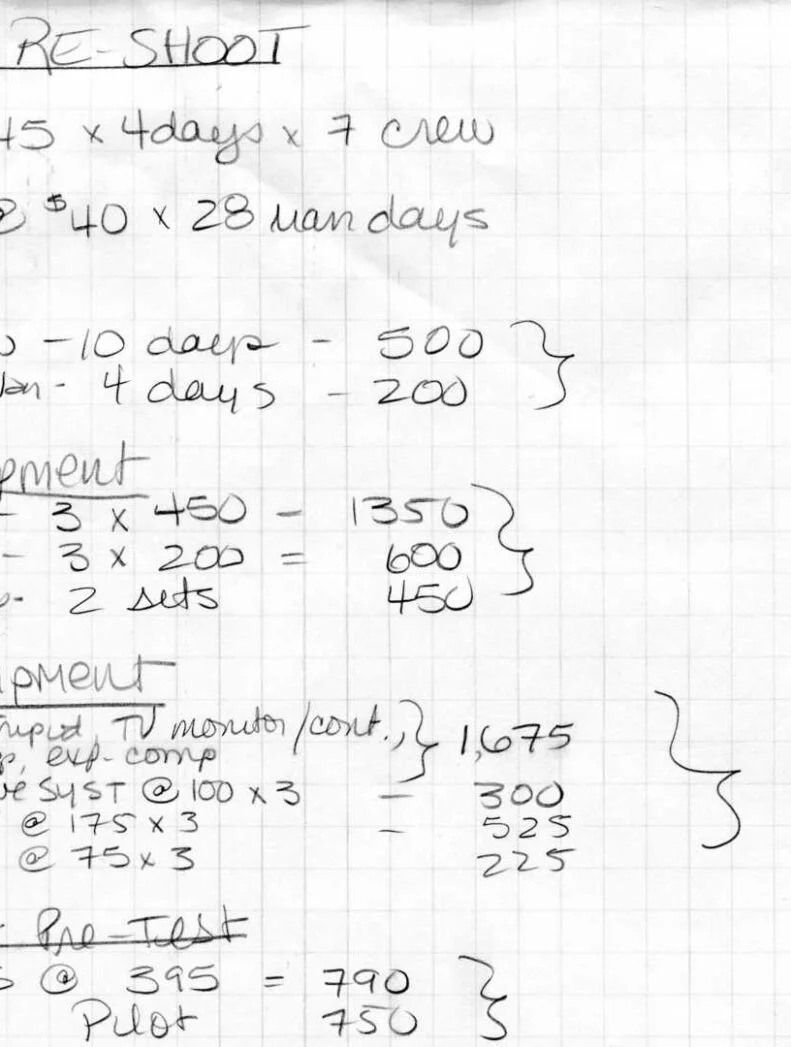 RE-SHOOT
45 × 4days × 7 crew
@ $40 × 28 man days
- 10 days - 500
- 4 days - 200
pment
- 3 × 450 - 1350
- 3 × 200 = 600
- 2 sets 450
ipment
TV monitor/cont., 1,675
exp-comp
SYST @ 100 × 3 - 300
@ 175 × 3 - 525
@ 75 × 3 225
Pre-Test
@ 395 = 790
Pilot 750